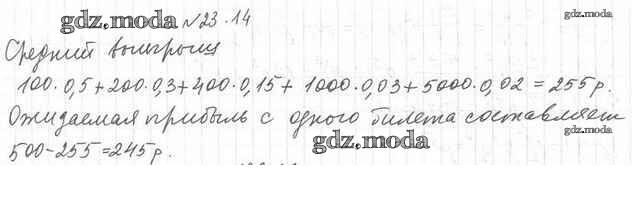 gdz.moda №23.14 gdz.moda
Средний выигрыш
100·0,5+200·0,3+400·0,15+ 1000·0,03+5000·0,02 = 255р.
Ожидаемая прибыль с одного билета составляет
gdz.moda
500-255=245р. gdz.moda